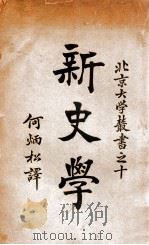 北京大學叢書之十
新史學
何炳松譯
mtoou.info